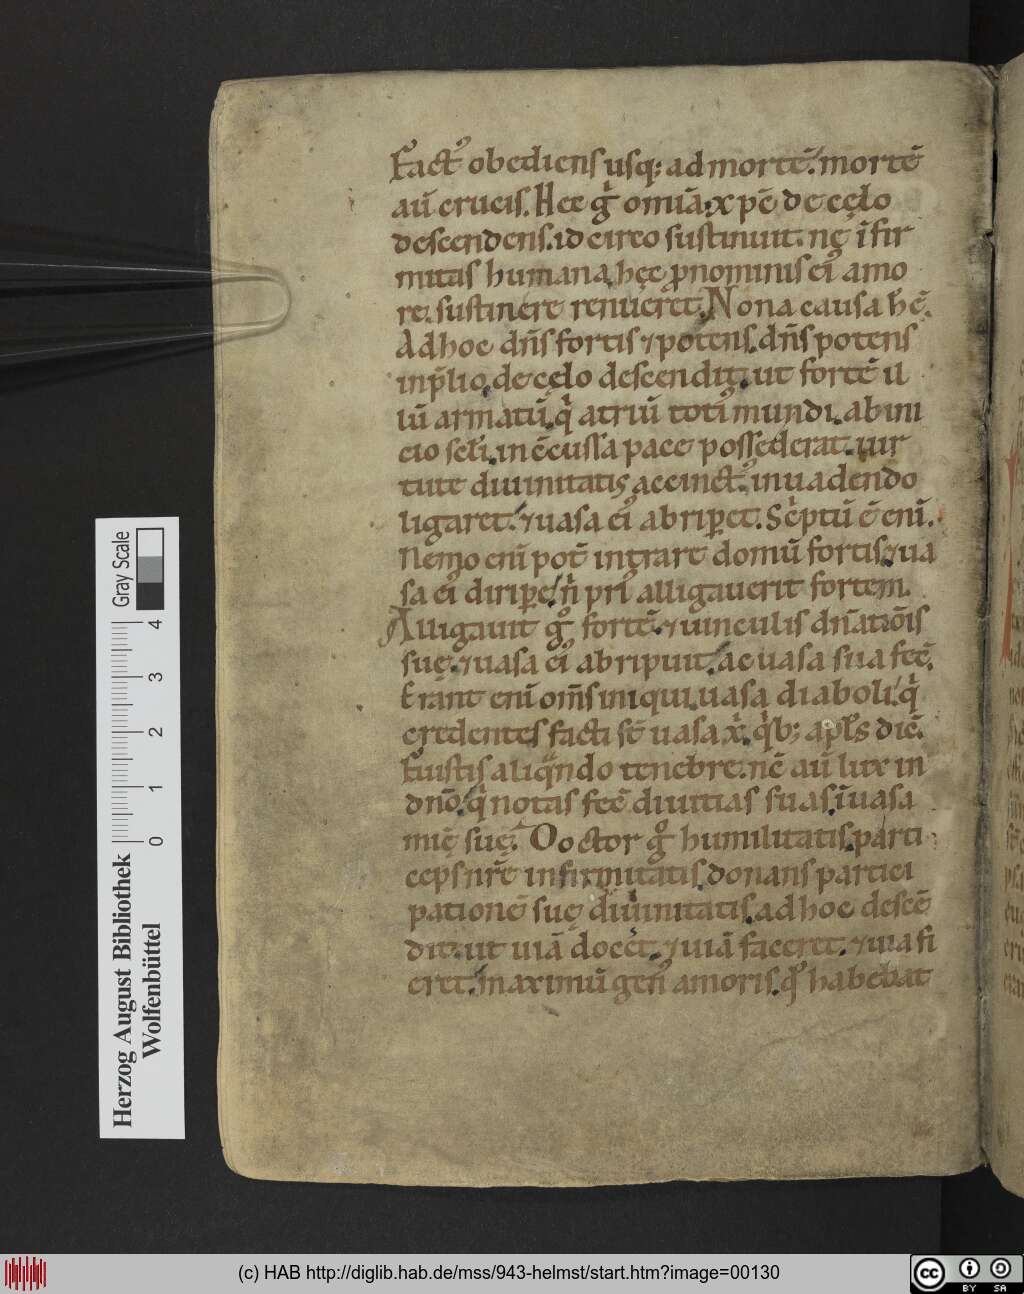 Fact᷒ obediens usq; ad mortē. mortē
aū crucis. Hec g̊ omīa xp̄c de cęlo
descendens. idcirco sustinuit. nę īfir
mitas humana hęc p̱ nominis ei᷒ amo
re. sustinere renueret. Nona causa h̄ ē.
Ad hoc dn̄s fortis ⁊ potens. dn̄s potens
in p̄lio, de cęlo descendit. ut fortē il
lū armatū. q̇ atriū toti᷒ mundi. ab ini
cio scl̄i. in ēcussa pace possederat. uir
tute diuinitatis accinct᷒. inuadendo
ligaret. ⁊ uasa ei᷒ abriꝑet. Sc̄ptū ē eni̅.
Nemo eni̅ pot̄ intrare domū fortis. ⁊ ua
sa ei᷒ diriꝑe. n̄ pri᷒ alligauerit fortem.
Alligauit g̊ fortē. ⁊ uinculis dn̄atiōis
suę. ⁊ uasa ei᷒ abripuit. ac uasa sua fec̄.
Erant eni̅ om̄s iniqui. uasa diaboli. q̇
credentes facti sт̄ uasa x̄. q̇b; apl̄s dic̄.
Fuistis aliqn̄do tenebre. nc̄ aū lux in
dn̄o. q̇ notas fec̄ diuitias suas. ī uasa
mīę suę. Doctor g̊ humilitatis. parti
ceps nr̄e infirmitatis. donans partici
pationē suę diuinitatis. ad hoc descē
dit. ut uiā docēt. ⁊ uiā faceret. ⁊ uia fi
eret. maximū gen᷒ amoris. qđ habebat
Herzog August Bibliothek
Wolfenbüttel
0 1 2 3 4
Gray Scale
(c) HAB http://diglib.hab.de/mss/943-helmst/start.htm?image=00130
cc BY SA